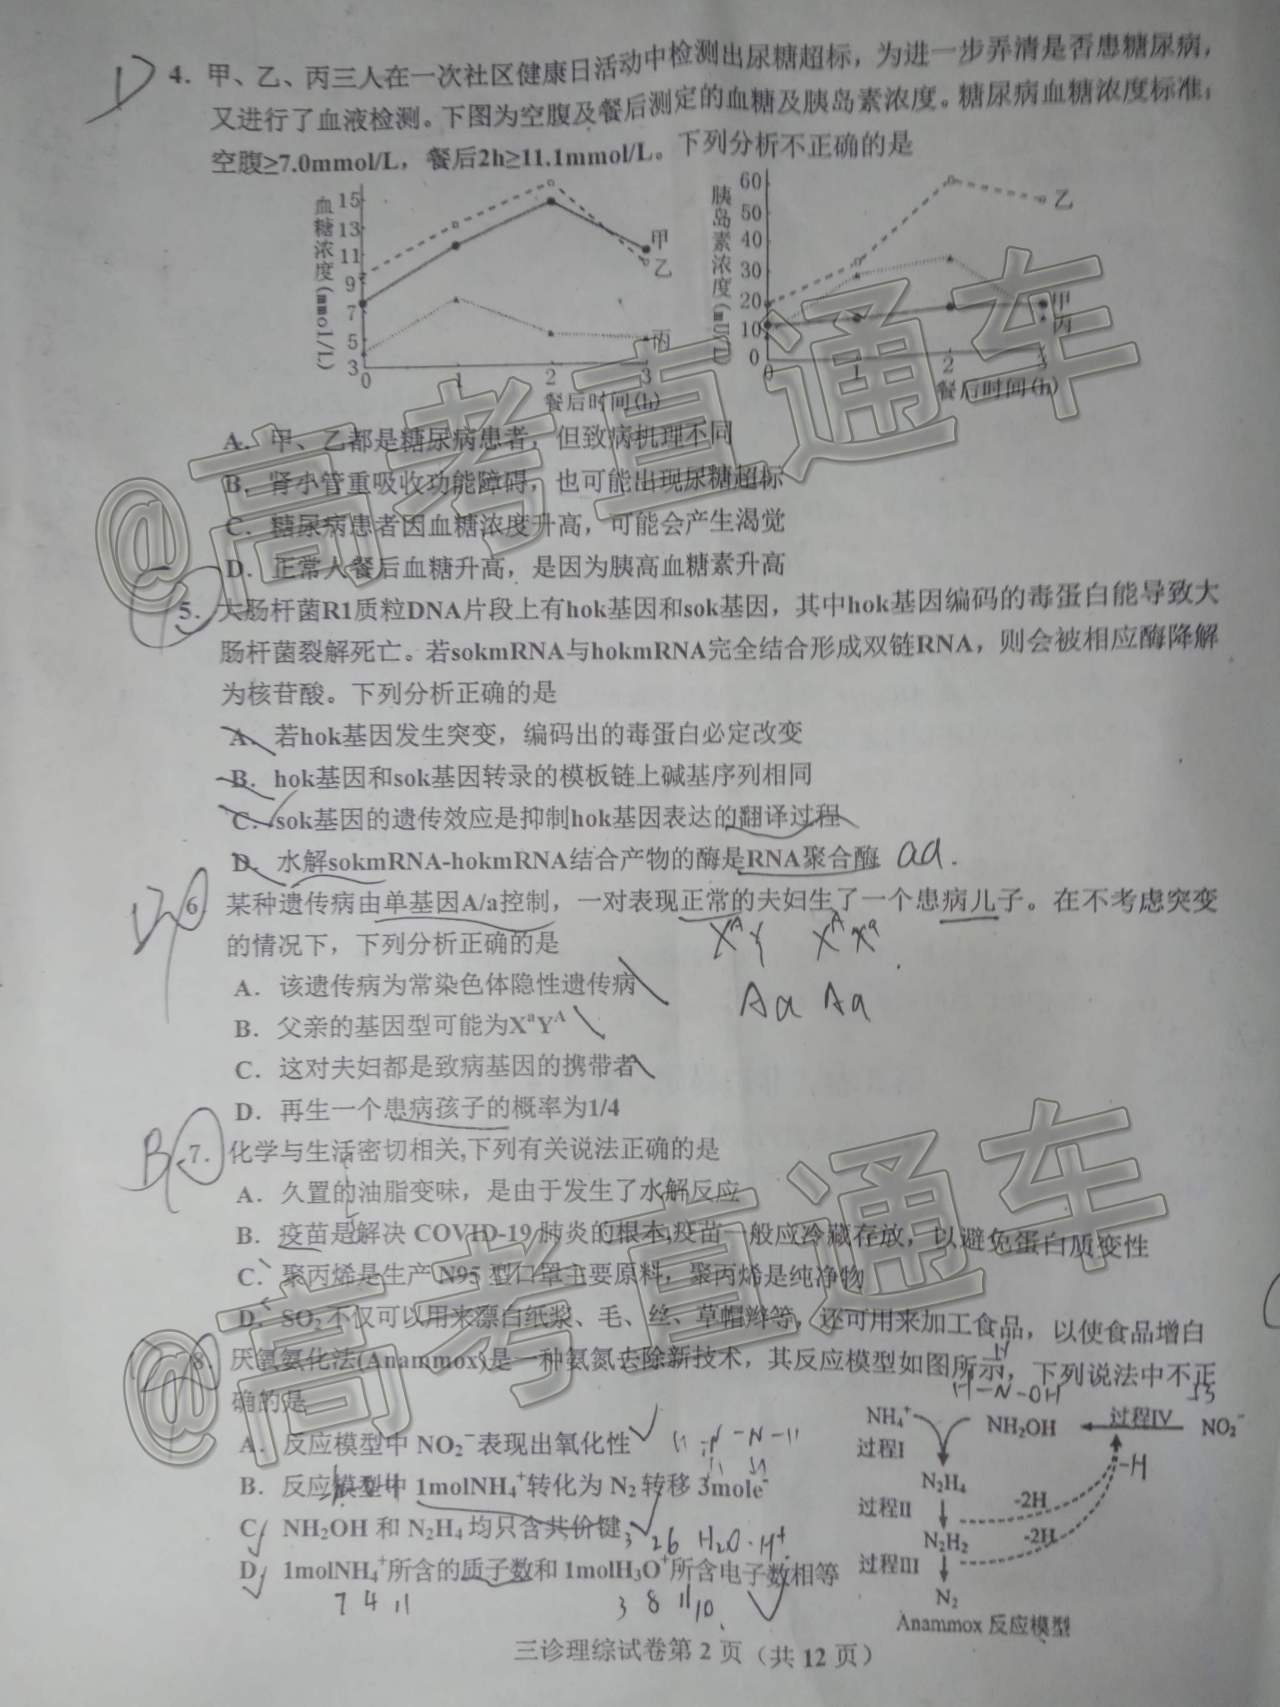 4. 甲、乙、丙三人在一次社区健康日活动中检测出尿糖超标，为进一步弄清是否患糖尿病，
又进行了血液检测。下图为空腹及餐后测定的血糖及胰岛素浓度。糖尿病血糖浓度标准：
空腹≥7.0mmol/L，餐后2h≥11.1mmol/L。下列分析不正确的是
血糖浓度(mmol/L)
15
13
11
9
7
5
3
0 1 2 3
餐后时间(h)
甲
乙
丙
胰岛素浓度(mU/L)
60
50
40
30
20
10
0
0 1 2 3
餐后时间(h)
乙
甲
丙
A. 甲、乙都是糖尿病患者，但致病机理不同
B. 肾小管重吸收功能障碍，也可能出现尿糖超标
C. 糖尿病患者因血糖浓度升高，可能会产生渴觉
D. 正常人餐后血糖升高，是因为胰高血糖素升高
5. 大肠杆菌R1质粒DNA片段上有hok基因和sok基因，其中hok基因编码的毒蛋白能导致大
肠杆菌裂解死亡。若sokmRNA与hokmRNA完全结合形成双链RNA，则会被相应酶降解
为核苷酸。下列分析正确的是
A. 若hok基因发生突变，编码出的毒蛋白必定改变
B. hok基因和sok基因转录的模板链上碱基序列相同
C. sok基因的遗传效应是抑制hok基因表达的翻译过程
D. 水解sokmRNA-hokmRNA结合产物的酶是RNA聚合酶 aa.
D 6 某种遗传病由单基因A/a控制，一对表现正常的夫妇生了一个患病儿子。在不考虑突变
的情况下，下列分析正确的是
XᴬY XᴬXᵃ
A. 该遗传病为常染色体隐性遗传病
Aa Aa
B. 父亲的基因型可能为XᵃYᴬ
C. 这对夫妇都是致病基因的携带者
D. 再生一个患病孩子的概率为1/4
B 7. 化学与生活密切相关,下列有关说法正确的是
A. 久置的油脂变味，是由于发生了水解反应
B. 疫苗是解决 COVID-19 肺炎的根本,疫苗一般应冷藏存放，以避免蛋白质变性
C. 聚丙烯是生产 N95 型口罩主要原料，聚丙烯是纯净物
D. SO₂不仅可以用来漂白纸浆、毛、丝、草帽辫等，还可用来加工食品，以使食品增白
8. 厌氧氨化法(Anammox)是一种氨氮去除新技术，其反应模型如图所示，下列说法中不正
确的是
H-N-OH
A. 反应模型中 NO₂⁻表现出氧化性
B. 反应模型中 1molNH₄⁺转化为 N₂ 转移 3mole⁻
C. NH₂OH 和 N₂H₄ 均只含共价键
26 H₂O·H⁺
D. 1molNH₄⁺所含的质子数和 1molH₃O⁺所含电子数相等
7 4 11
3 8 11 10
NH₄⁺
NH₂OH
过程IV
NO₂⁻
过程I
N₂H₄
-H
过程II
-2H
N₂H₂
-2H
过程III
N₂
Anammox 反应模型
三诊理综试卷第 2 页（共 12 页）
@高考直通车
@高考直通车